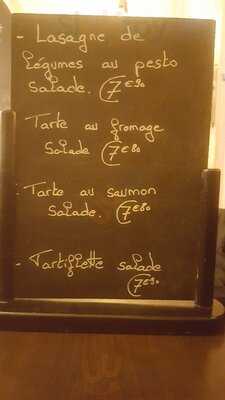 - Lasagne de
légumes au pesto
salade. 7€90
- Tarte au fromage
salade 7€80
- Tarte au saumon
salade. 7€80
- Tartiflette salade
7€90